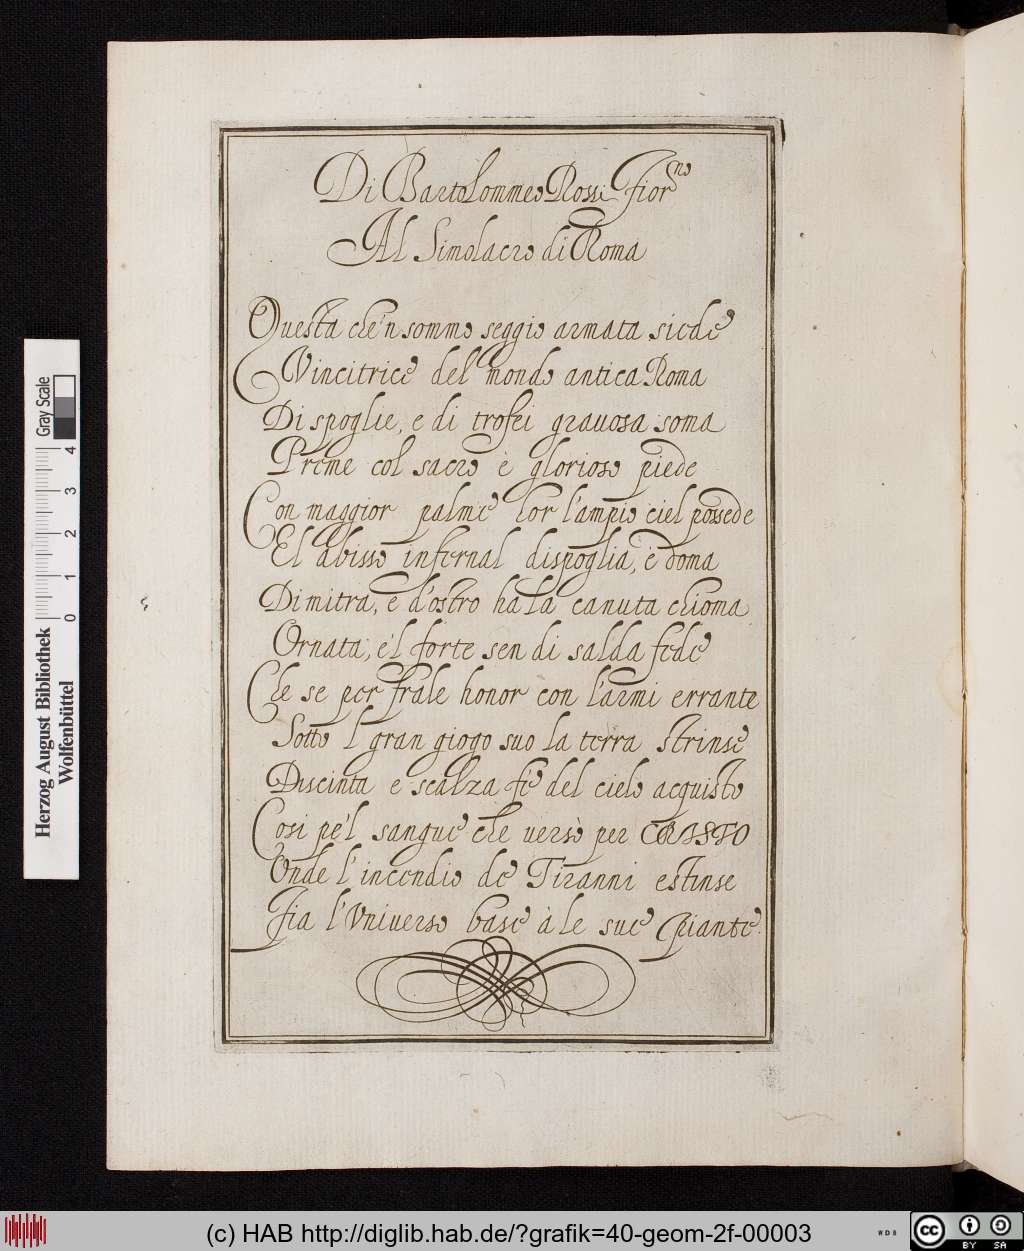 Di Bartolommeo Rossi Fior.no
Al Simolacro di Roma
Questa che'n sommo seggio armata siede
Vincitrice del mondo antica Roma
Di spoglie, e di trofei grauosa soma
Preme col sacro è glorioso piede
Con maggior palme hor l'ampio ciel possede
El abisso infernal dispoglia, è doma
Di mitra, e d'ostro ha la canuta chioma
Ornata, e'l forte sen di salda fede
Che se per frale honor con l'armi errante
Sotto 'l gran giogo suo la terra strinse
Discinta e scalza fe del cielo acquisto
Cosi pe'l sangue che versò per CRISTO
Onde l'incendio de Tiranni estinse
Fia l'Vniverso base à le sue Piante.
Gray Scale
4
3
2
1
0
Herzog August Bibliothek
Wolfenbüttel
(c) HAB http://diglib.hab.de/?grafik=40-geom-2f-00003
WDB
cc
BY
SA